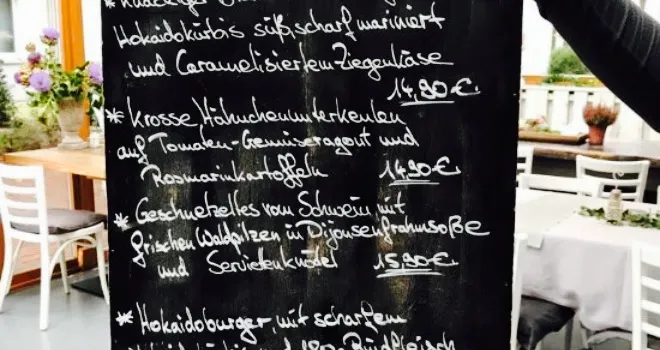 * Knackiger
Hokaidokürbis süß, scharf mariniert
und Caramelisiertem Ziegenkäse
14,90 €
* Krosse Hähnchenunterkeulen
auf Tomaten-Gemüseragout und
Rosmarinkartoffeln 14,90 €
* Geschnetzelles vom Schwein mit
frischen Waldpilzen in Dijonsenfrahmsoße
und Servietenknödel 15,90 €
* Hokaidoburger, mit scharfem
Rindfleisch